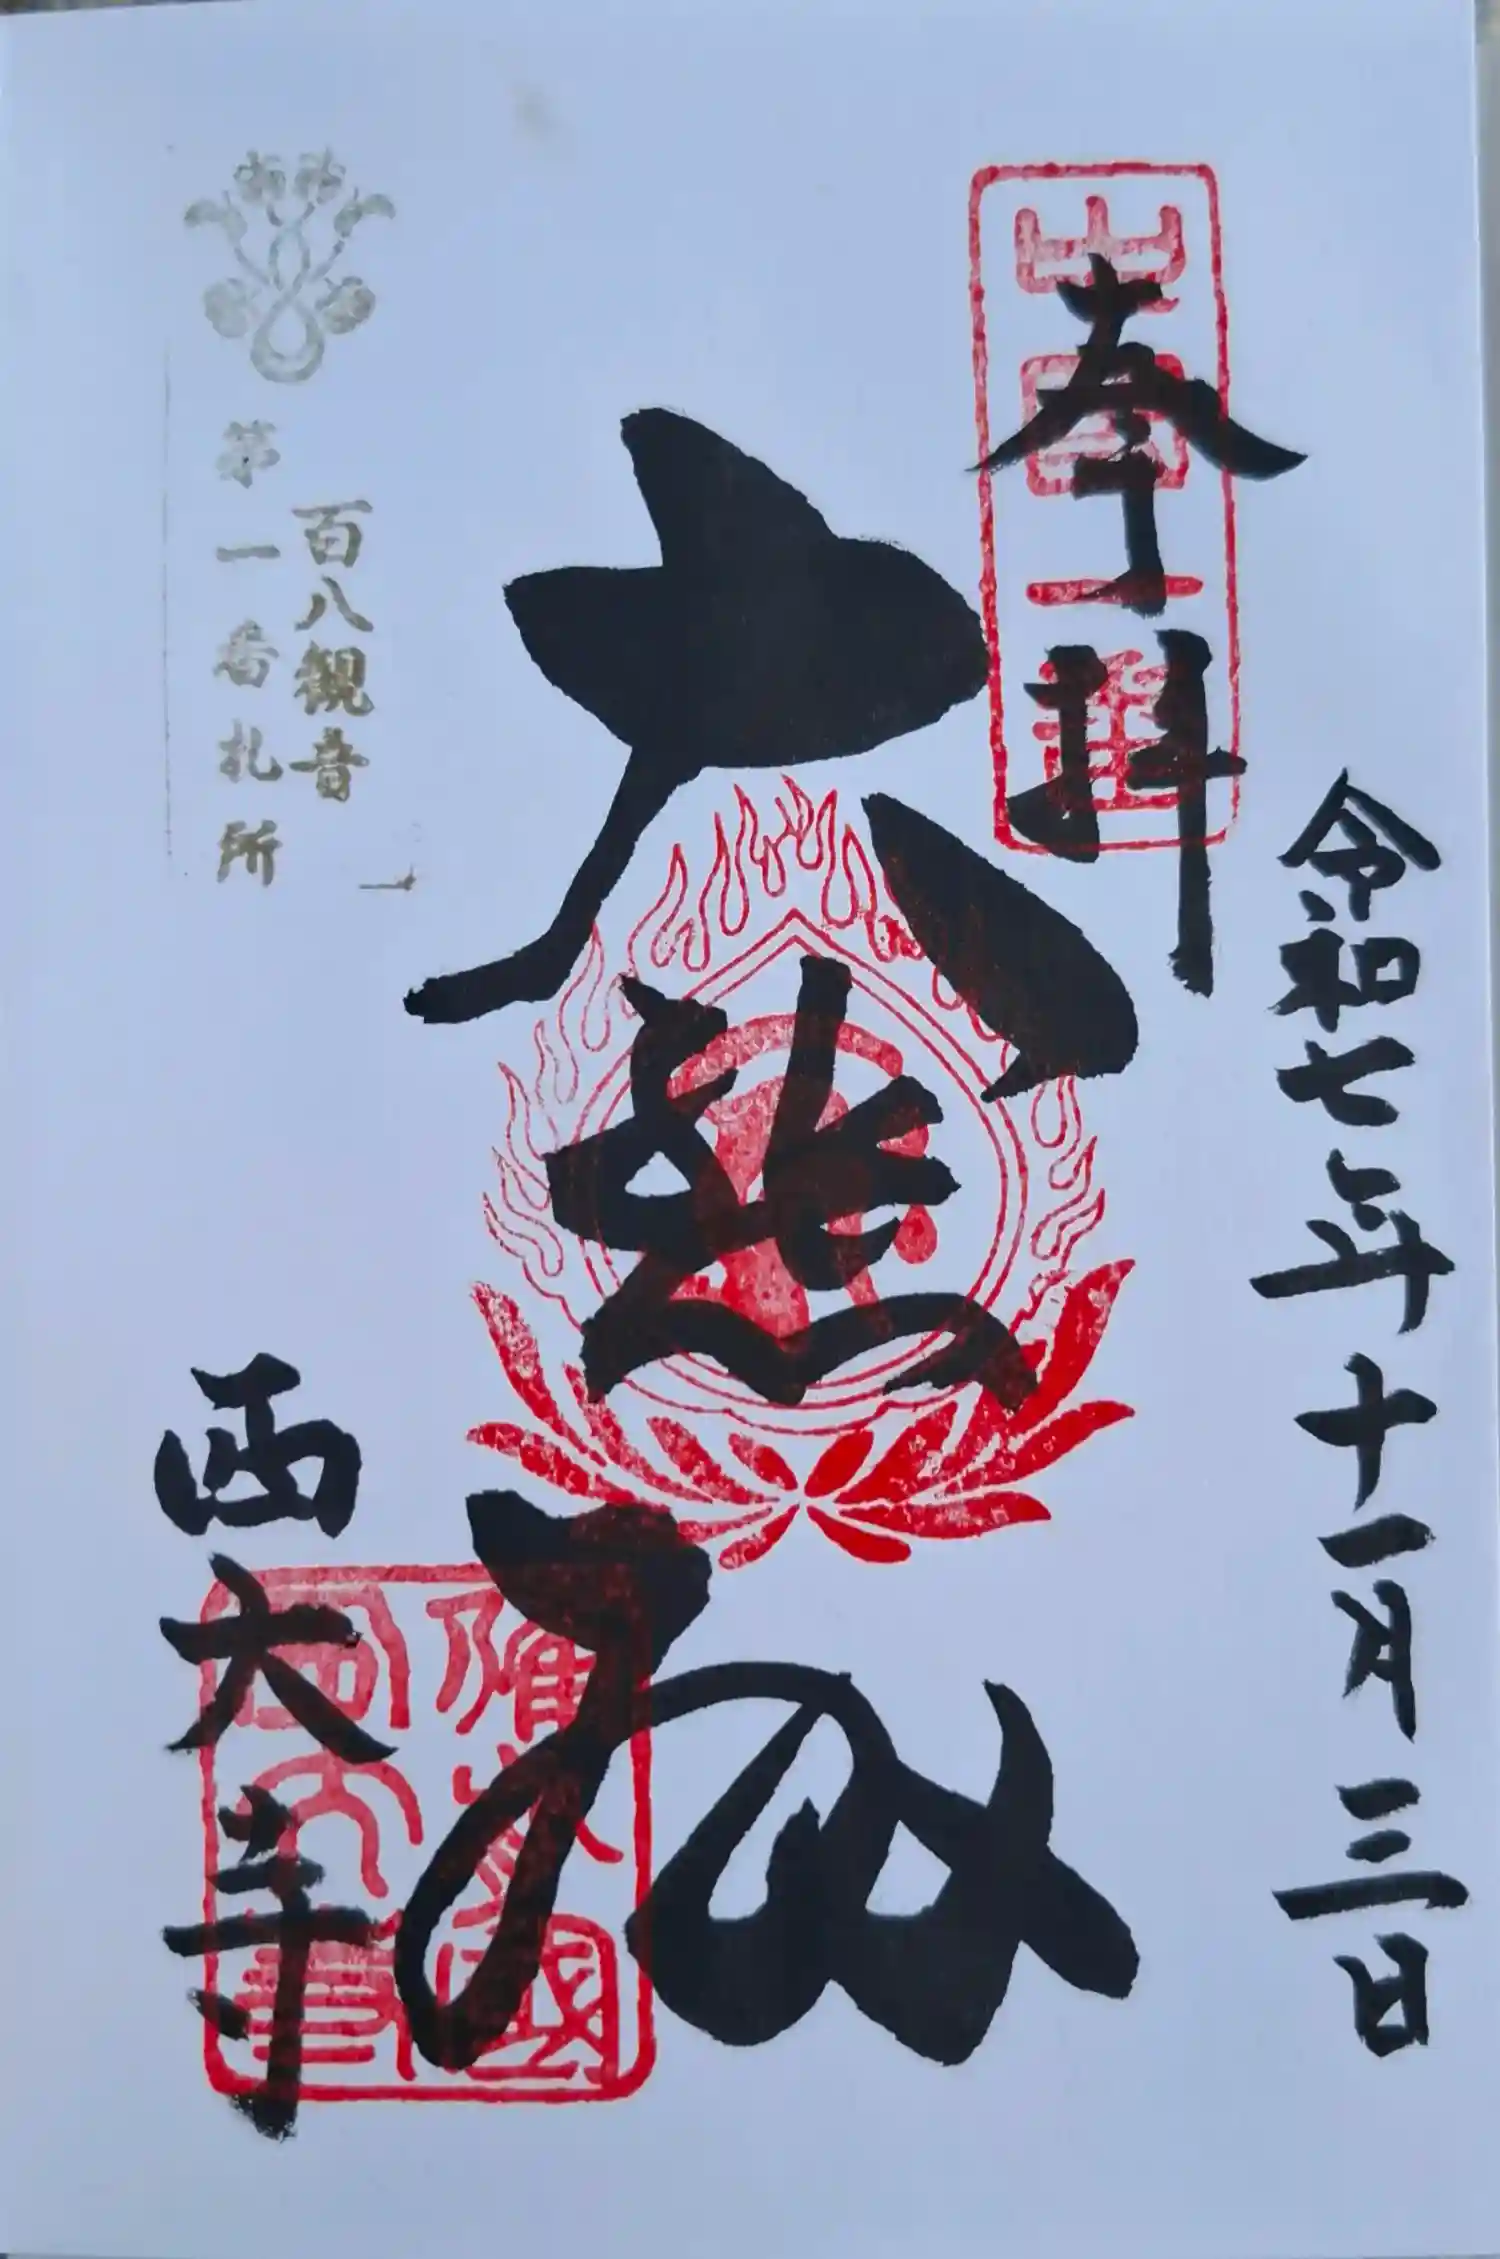 令和七年十一月三日
奉拝
中国一番
大悲殿
備前國
西大寺
西大寺
百八観音
第一番札所